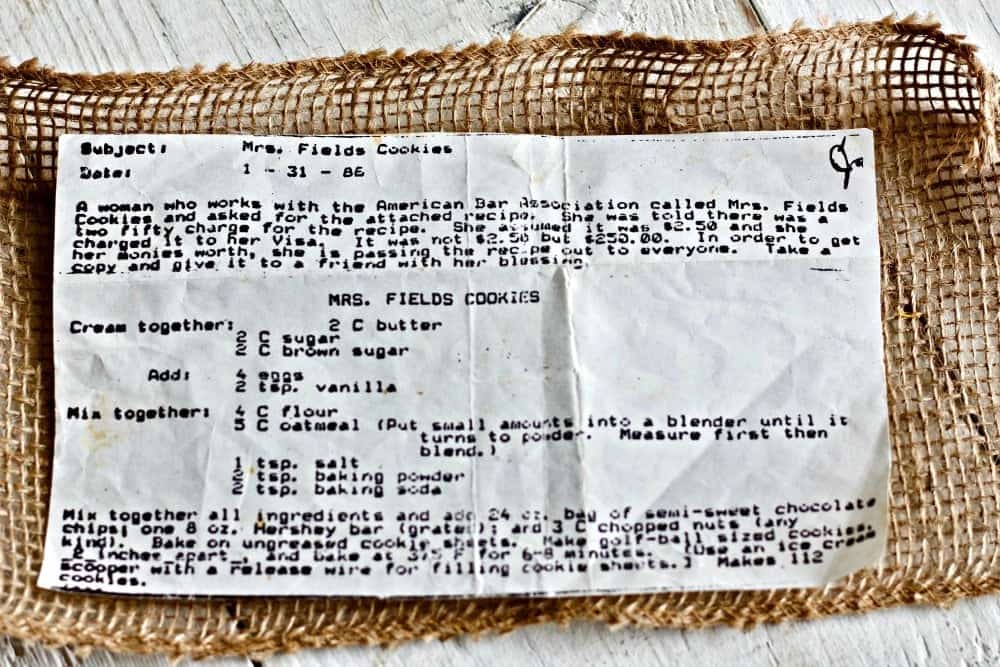 Subject: Mrs. Fields Cookies
Date: 1 - 31 - 86
A woman who works with the American Bar Association called Mrs. Fields
Cookies and asked for the attached recipe. She was told there was a
two fifty charge for the recipe. She assumed it was $2.50 and she
charged it to her Visa. It was not $2.50 but $250.00. In order to get
her monies worth, she is passing the recipe out to everyone. Take a
copy and give it to a friend with her blessing.
MRS. FIELDS COOKIES
Cream together: 2 C butter
2 C sugar
2 C brown sugar
Add: 4 eggs
2 tsp. vanilla
Mix together: 4 C flour
5 C oatmeal (Put small amounts into a blender until it
turns to powder. Measure first then
blend.)
1 tsp. salt
2 tsp. baking powder
2 tsp. baking soda
Mix together all ingredients and add 24 oz. bag of semi-sweet chocolate
chips; one 8 oz. Hershey bar (grated); and 3 C chopped nuts (any
kind). Bake on ungreased cookie sheets. Make golf-ball sized cookies,
2 inches apart, and bake at 375 F for 6-8 minutes. (Use an ice cream
scooper with a release wire for filling cookie sheets.) Makes 112
cookies.